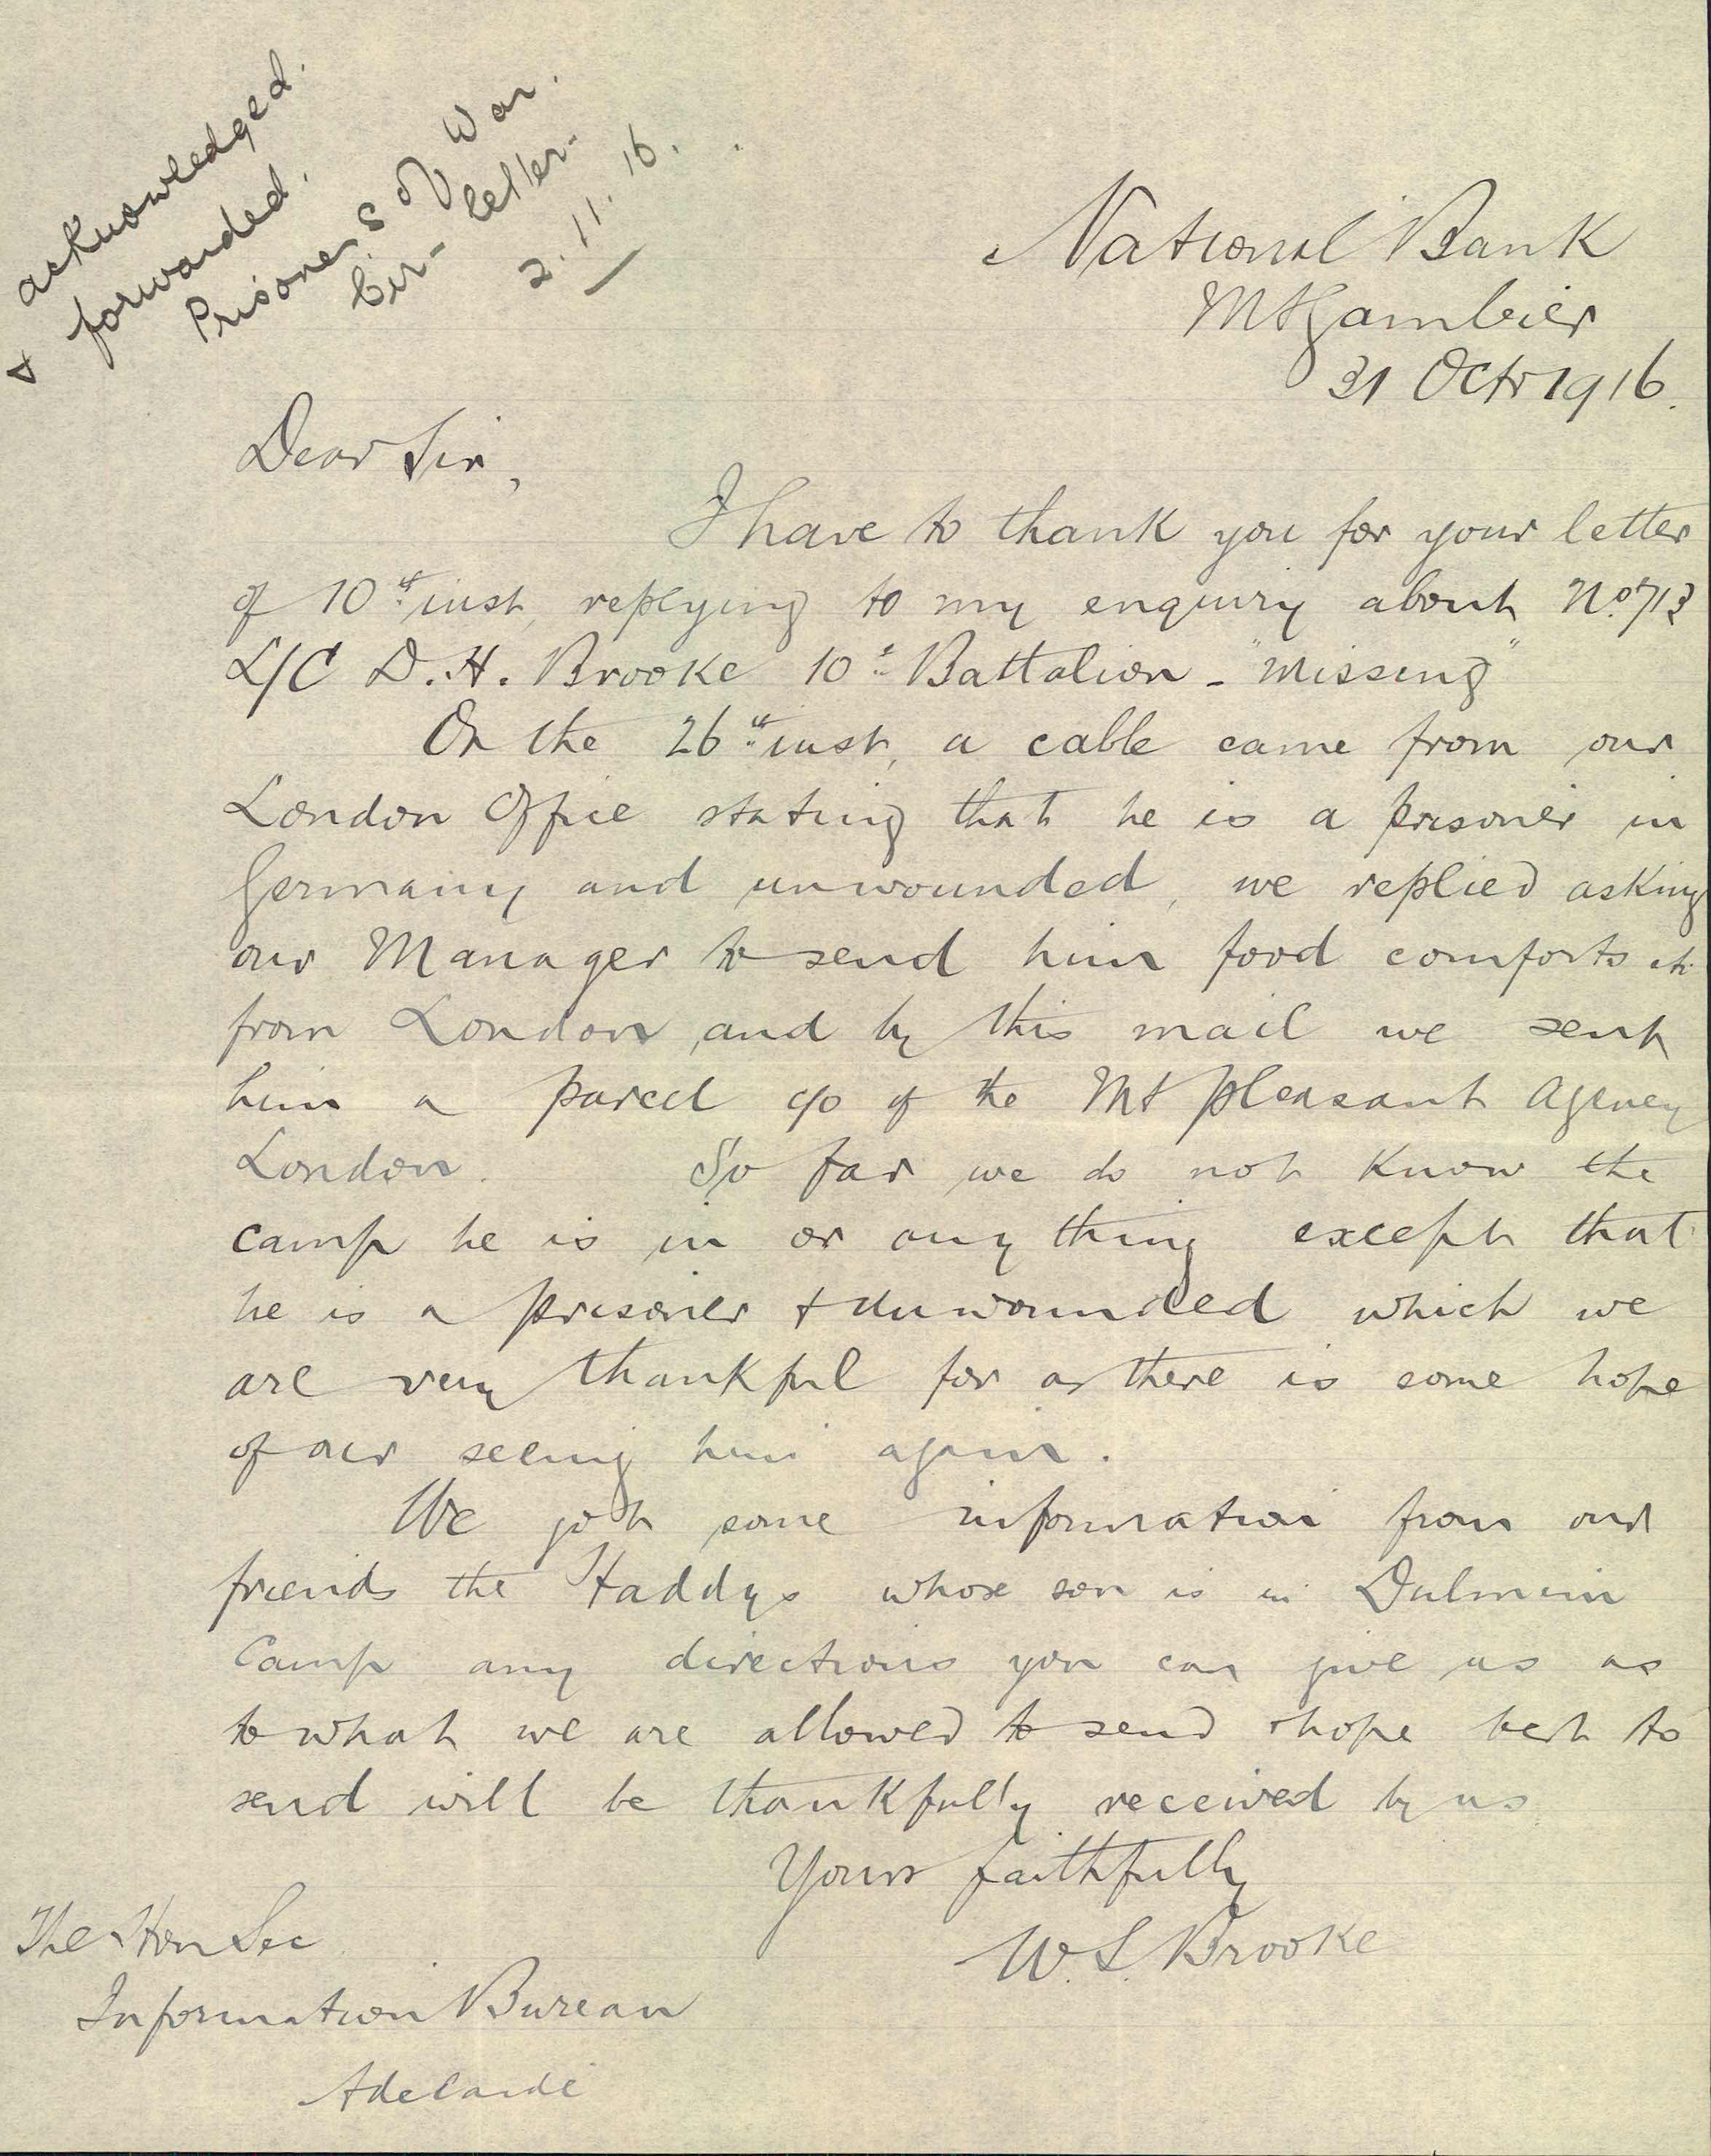 acknowledged.
& forwarded.
Prisoners of War.
Cir- letter-
2.11.16.
National Bank
Mt Gambier
31 Octr 1916.
Dear Sir,
I have to thank you for your letter
of 10th inst, replying to my enquiry about No. 713
L/C D. H. Brooke 10th Battalion - "Missing"
On the 26th inst, a cable came from our
London Office stating that he is a prisoner in
Germany and unwounded, we replied asking
our Manager to send him food comforts etc
from London, and by this mail we sent
him a parcel c/o of the Mt Pleasant Agency
London. So far we do not know the
camp he is in or any thing except that
he is a prisoner & unwounded which we
are very thankful for as there is some hope
of our seeing him again.
We got some information from our
friends the Haddys whose son is in Dulmein
Camp any directions you can give us as
to what we are allowed to send best to
send will be thankfully received by us
Yours faithfully
W. S. Brooke
The Hon Sec
Information Bureau
Adelaide